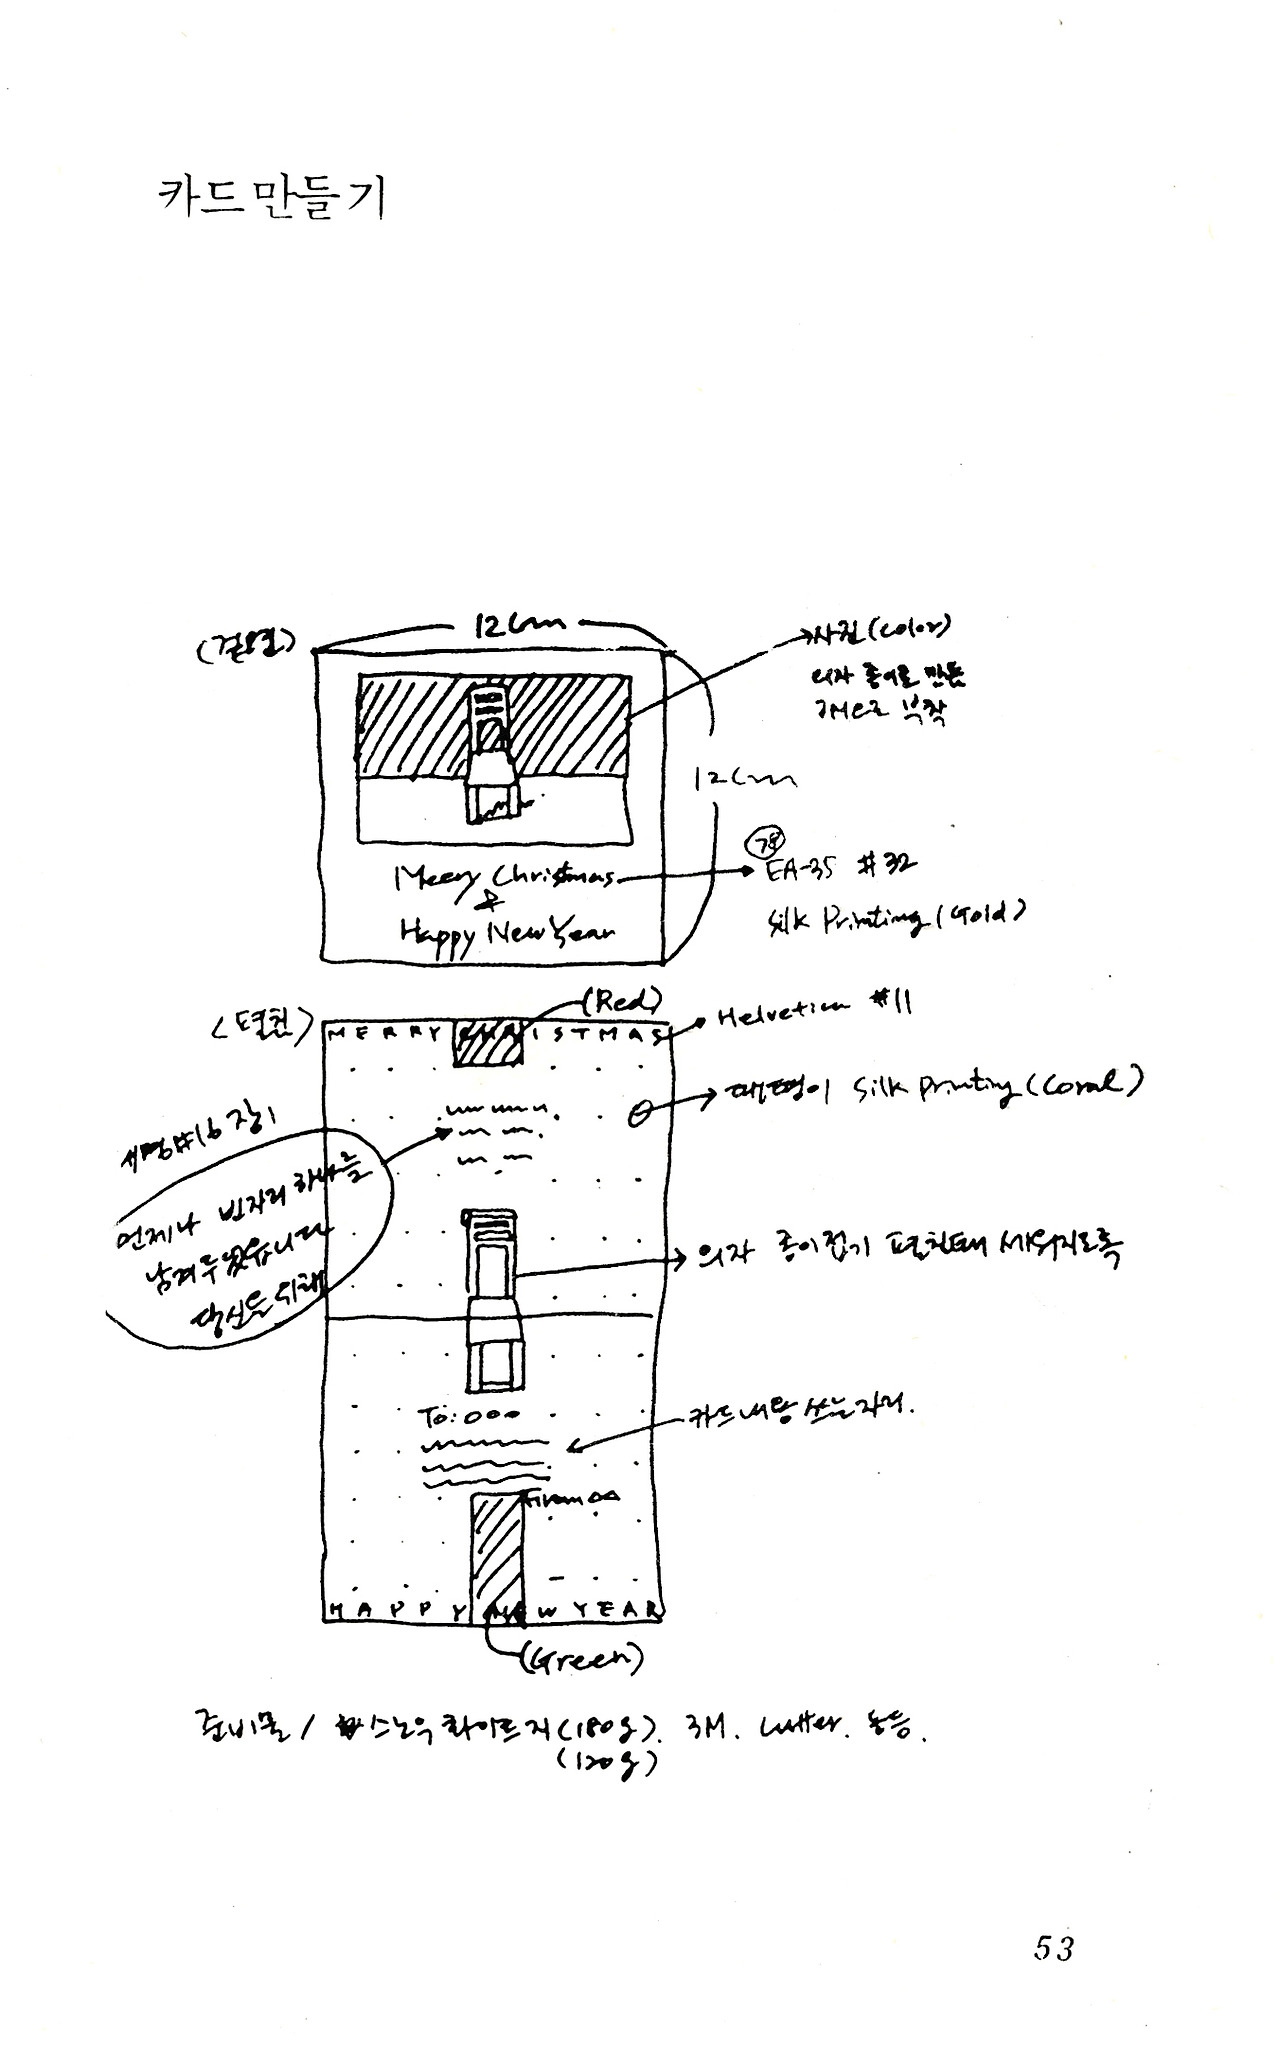 카드만들기
(겉장)
12cm
사진(color)
의자 종이로 만듦
3M으로 부착
12cm
EA-35 #32
Silk Printing (Gold)
Merry Christmas
&
Happy New Year
(Red)
<펼침>
MERRY CHRISTMAS
Helvetica #11
땡땡이 Silk printing (Coral)
세명#16 장1
언제나 빈자리 하나를
남겨두었읍니다
당신을 위해
의자 종이접기 펼칠때 세워지도록
To: ooo
카드내용 쓰는자리.
From
HAPPY NEW YEAR
(Green)
준비물 / 스노우화이트지(180g). 3M. cutter. 등등.
(120g)
53